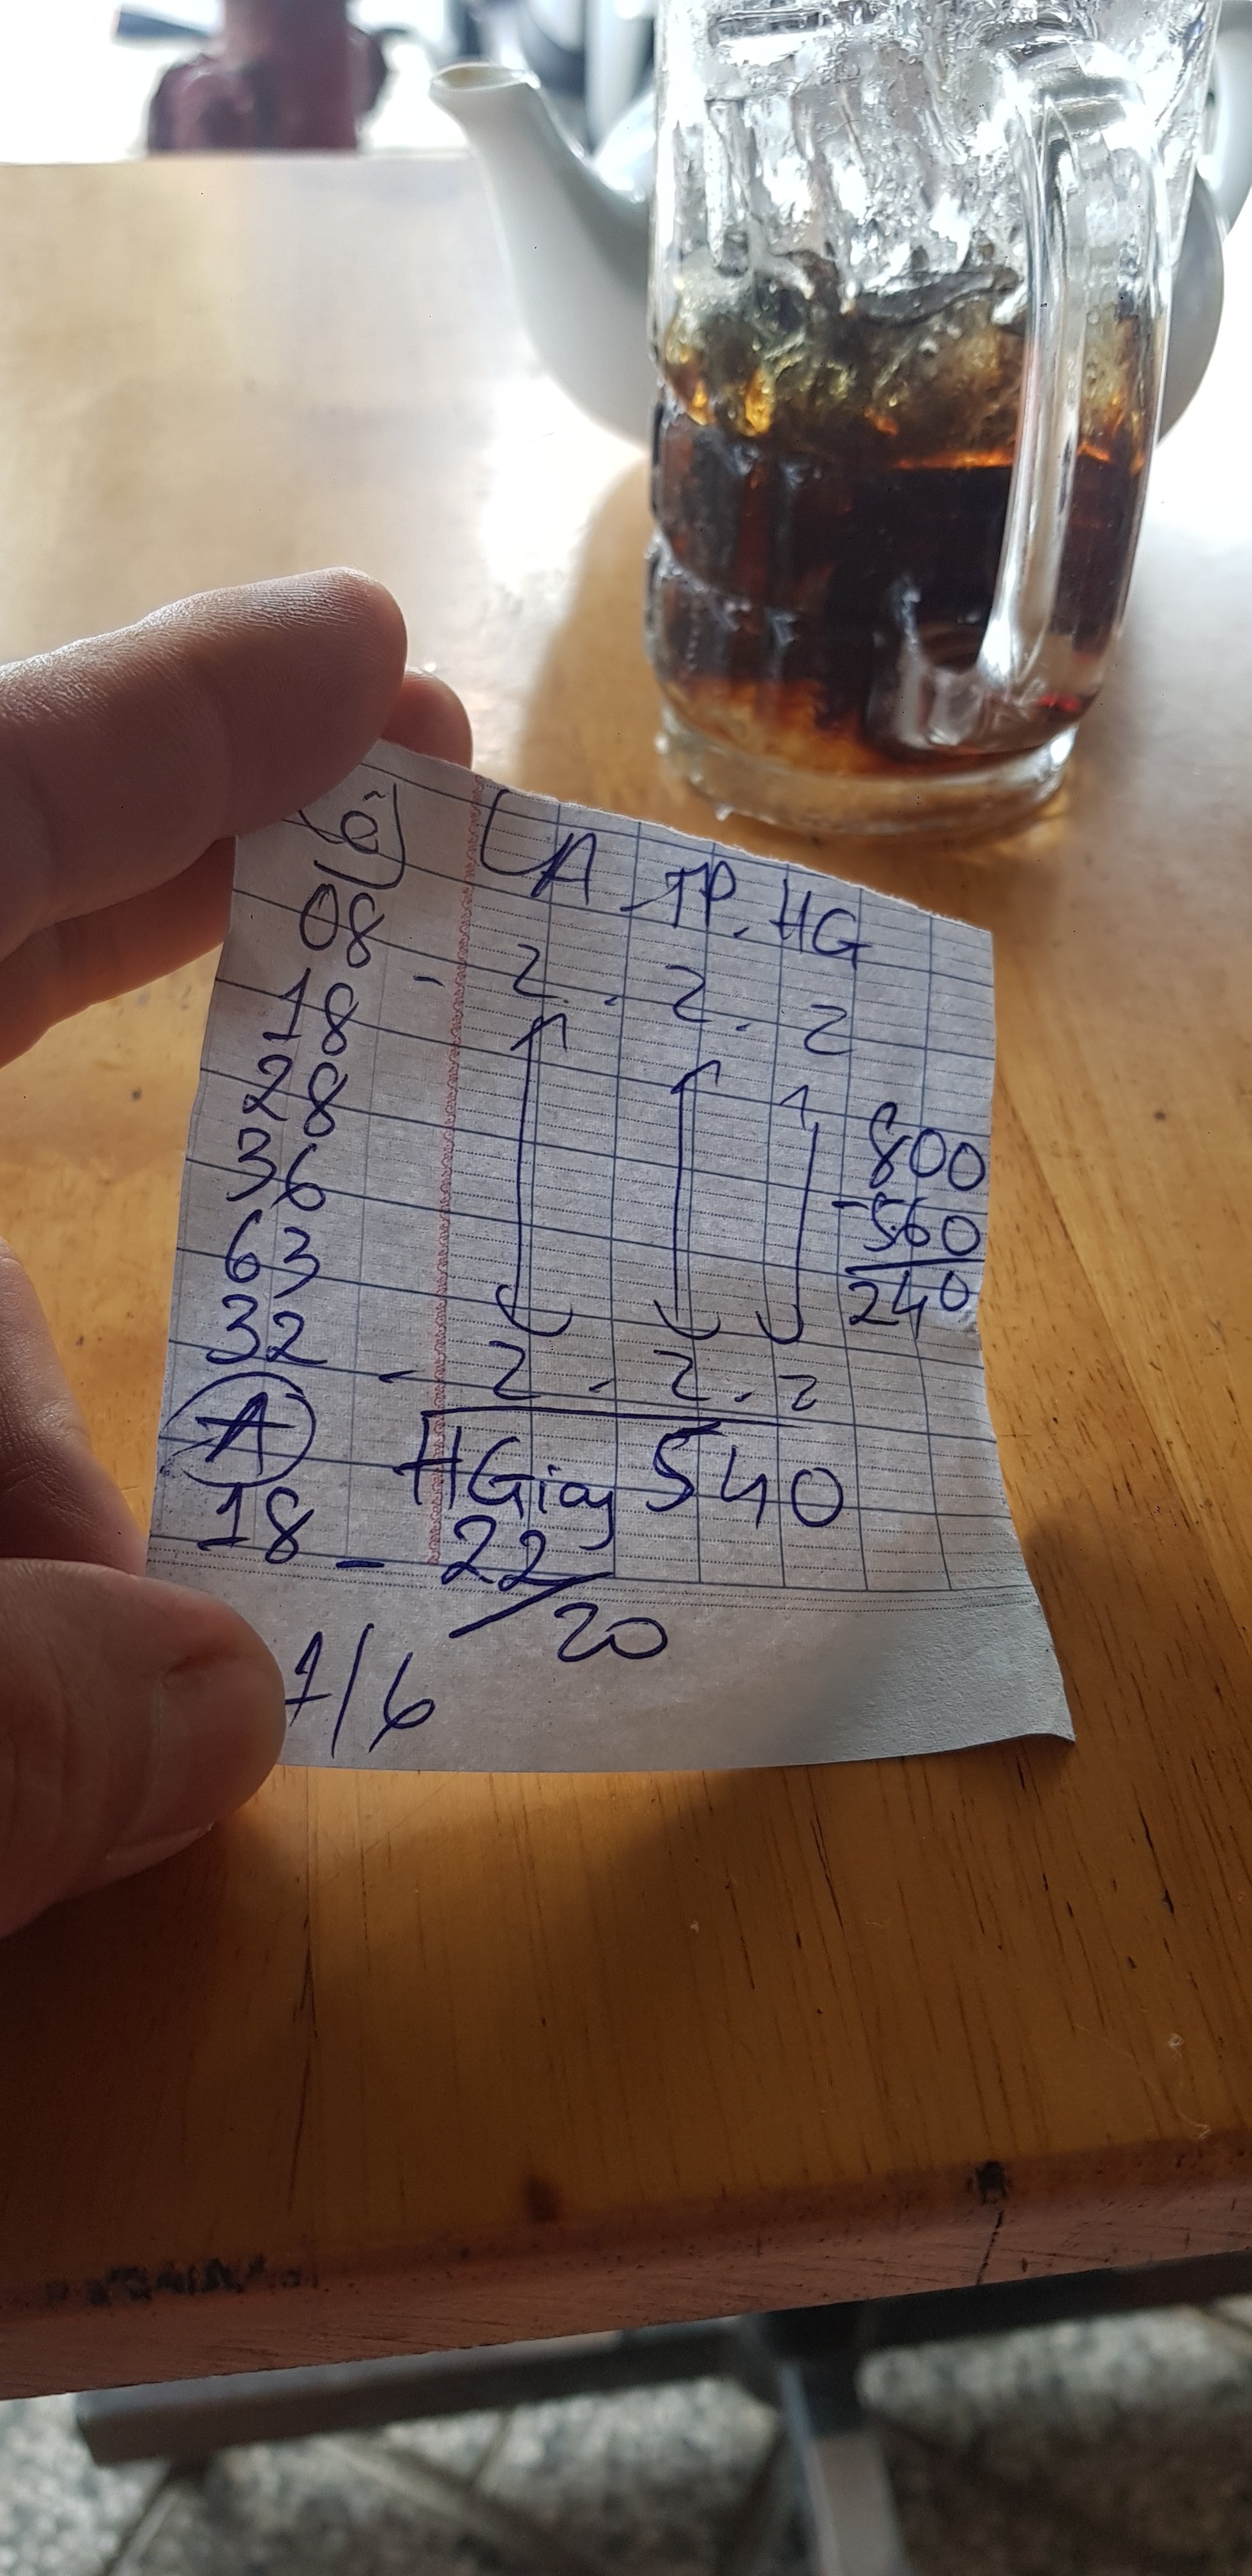 Lô LA TP. HG
08 - 2 . 2 . 2
18
28
36 800
63 -560
32 - 2 - 2 . 2 240
A HGiag 540
18 - 22/20
1/6